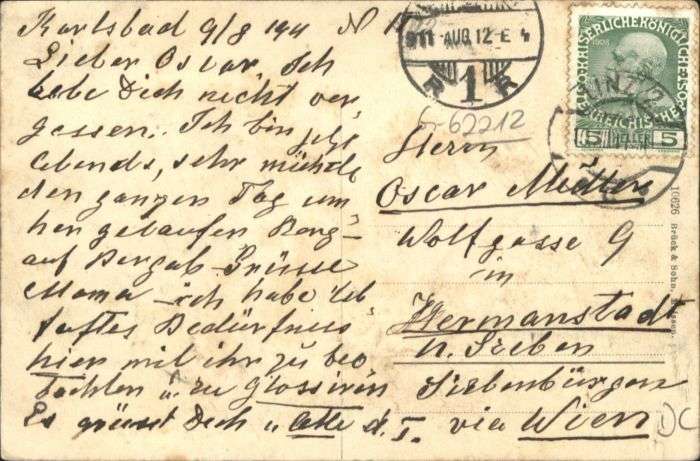 Karlsbad 9/8 1911 N 1
Lieber Oscar, ich
habe Dich nicht ver
gessen. Ich bin jetzt
abends, sehr müde
den ganzen Tag um
her gelaufen Berg-
auf Bergab. Grüsse
Mama - ich habe leb
haftes Bedürfniss
hier mit ihr zu beo
bachten u. zu glossiren
Es grüsst Dich u Alle d. T.
911 AUG. 12 - E 4
1
G-62212
KAISERLICHE KÖNIGLICHE
1908
LINZ/2
5 HELLER 5
Herrn
Oscar
Wolfgasse 9
in
Hermannstadt
n. Sieben
Siebenbürgen
via Wien
10626 Brück & Sohn,